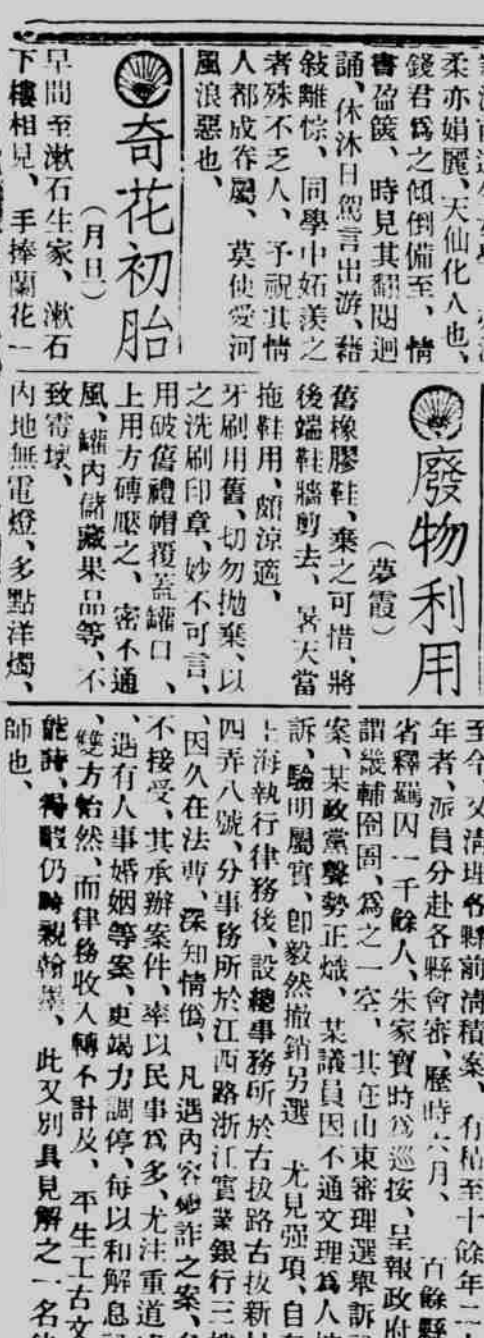 柔亦娟麗、天仙化人也、
錢君爲之傾倒備至、情
書盈篋、時見其翻閱迴
誦、休沐日駕言出游、藉
敍離悰、同學中妬羨之
者殊不乏人、予祝其情
人都成眷屬、莫使愛河
風浪惡也、
奇花初胎
（月旦）
早間至漱石生家、漱石
下樓相見、手捧蘭花一
廢物利用
（夢霞）
舊橡膠鞋、棄之可惜、將
後端鞋牆剪去、暑天當
拖鞋用、頗涼適、
牙刷用舊、切勿拋棄、以
之洗刷印章、妙不可言、
用破舊禮帽覆蓋罐口、
上用方磚壓之、密不通
風、罐內儲藏果品等、不
致霉壞、
內地無電燈、多點洋燭、
至今、又清理各縣前清積案、有枯至十餘年二
年者、派員分赴各縣會審、歷時六月、百餘縣
省釋羈囚一千餘人、朱家寶時爲巡按、呈報政府
謂畿輔囹圄、爲之一空、其在山東審理選舉訴訟
案、某政黨聲勢正熾、某議員因不通文理爲人
訴、驗明屬實、卽毅然撤銷另選　尤見强項、自
上海執行律務後、設總事務所於古拔路古拔新
四弄八號、分事務所於江西路浙江實業銀行三樓
、因久在法曹、深知情僞、凡遇內容變詐之案、
不接受、其承辦案件、率以民事爲多、尤注重道
、遇有人事婚姻等案、更竭力調停、每以和解息
、雙方怡然、而律務收入轉不計及、平生工古文
能詩、得暇仍時親翰墨、此又別具見解之一名
師也、